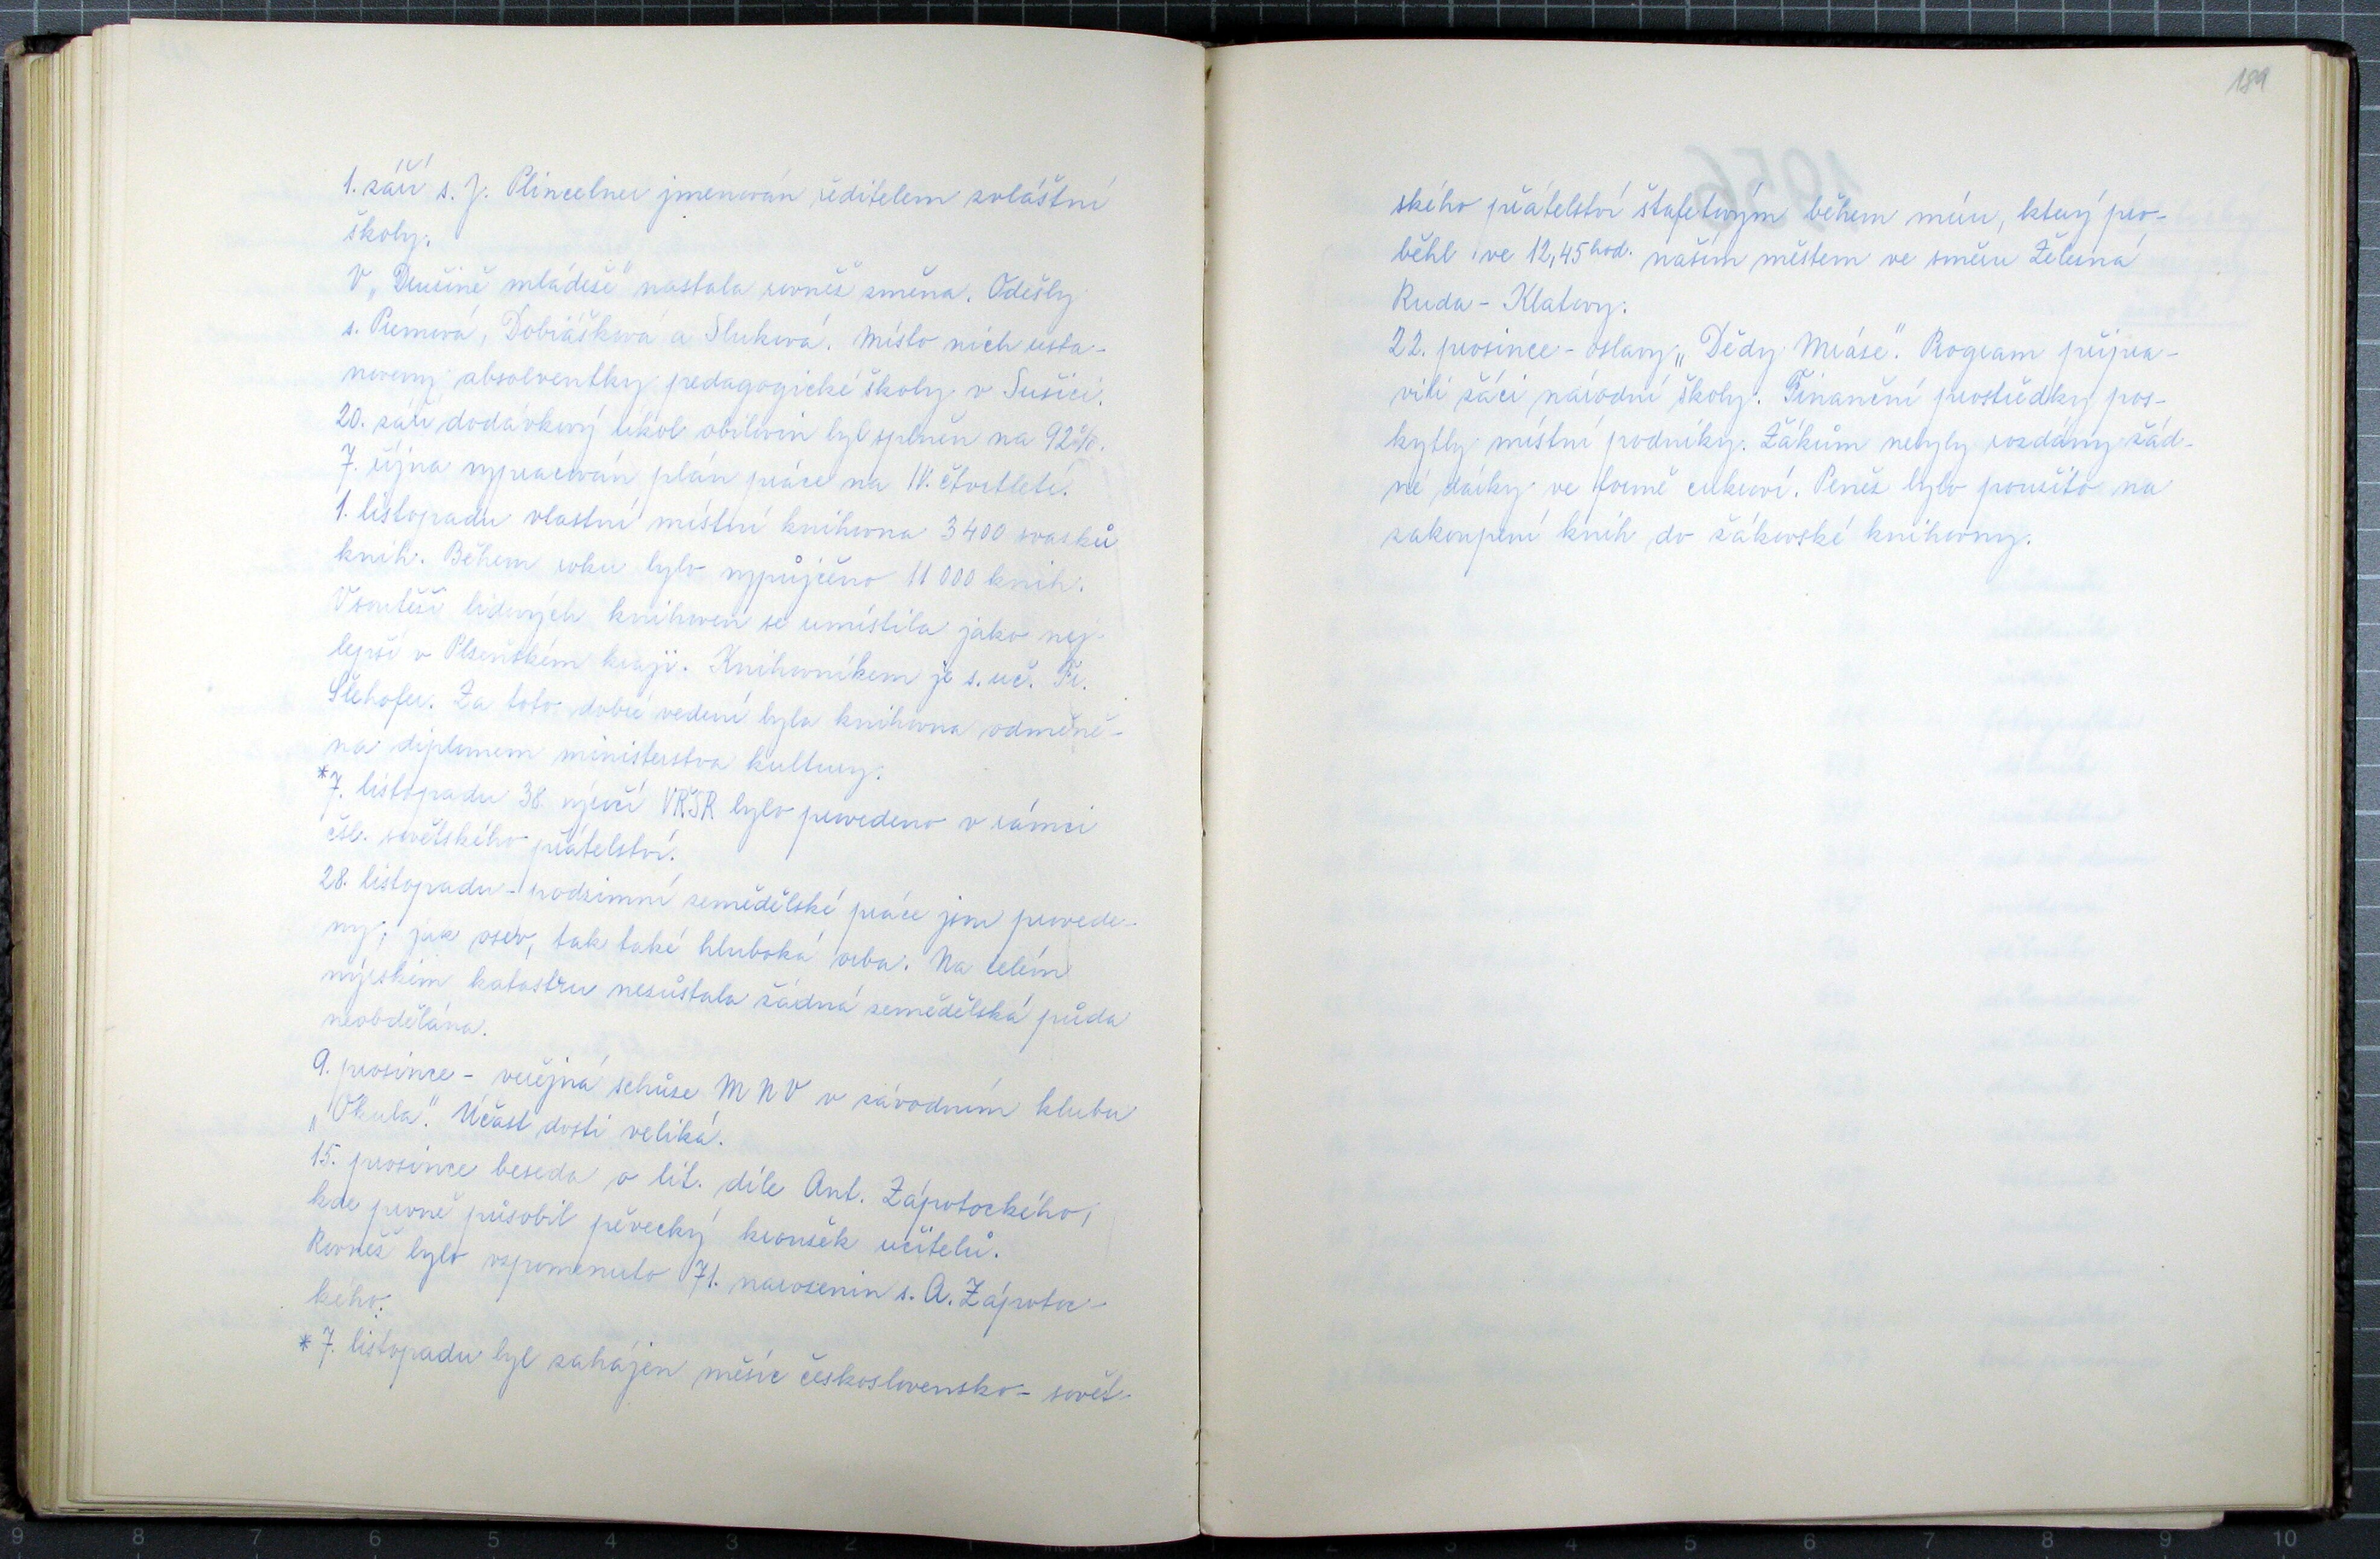 1. září s. J. Plincelner jmenován ředitelem zvláštní
školy.
V „Družině mládeže" nastala rovněž změna. Odešly
s. Premová, Dobiášková a Sluková. Místo nich usta-
noveny absolventky pedagogické školy v Sušici.
20. září dodávkový úkol obilovin byl splněn na 92%.
7. října vypracován plán práce na IV. čtvrtletí.
1. listopadu vlastní místní knihovna 3400 svazků
knih. Během roku bylo vypůjčeno 11 000 knih.
V soutěži lidových knihoven se umístila jako nej-
lepší v Plzeňském kraji. Knihovníkem je s. uč. Fr.
Šlehofer. Za toto dobré vedení byla knihovna odměně-
na diplomem ministerstva kultury.
* 7. listopadu 38. výročí VŘSR bylo provedeno v rámci
čsl. sovětského přátelství.
28. listopadu - podzimní zemědělské práce jsou provede-
ny, jak osev, tak také hluboká orba. Na celém
nýrském katastru nezůstala žádná zemědělská půda
neobdělána.
9. prosince - veřejná schůze MNV v závodním klubu
„Okula". Účast dosti veliká.
15. prosince beseda o lit. díle Ant. Zápotockého,
kde prvně působil pěvecký kroužek učitelů.
Rovněž bylo vzpomenuto 71. narozenin s. A. Zápotoc-
kého.
* 7. listopadu byl zahájen měsíc československo-sovět-
189
ského přátelství štafetovým během míru, který pro-
běhl ve 12,45 hod. naším městem ve směru Železná
Ruda - Klatovy.
22. prosince - oslavy „Dědy Mráze". Program připra-
vili žáci národní školy. Finanční prostředky pos-
kytly místní podniky. Žákům nebyly rozdány žád-
né dárky ve formě cukroví. Peněz bylo použito na
zakoupení knih do žákovské knihovny.